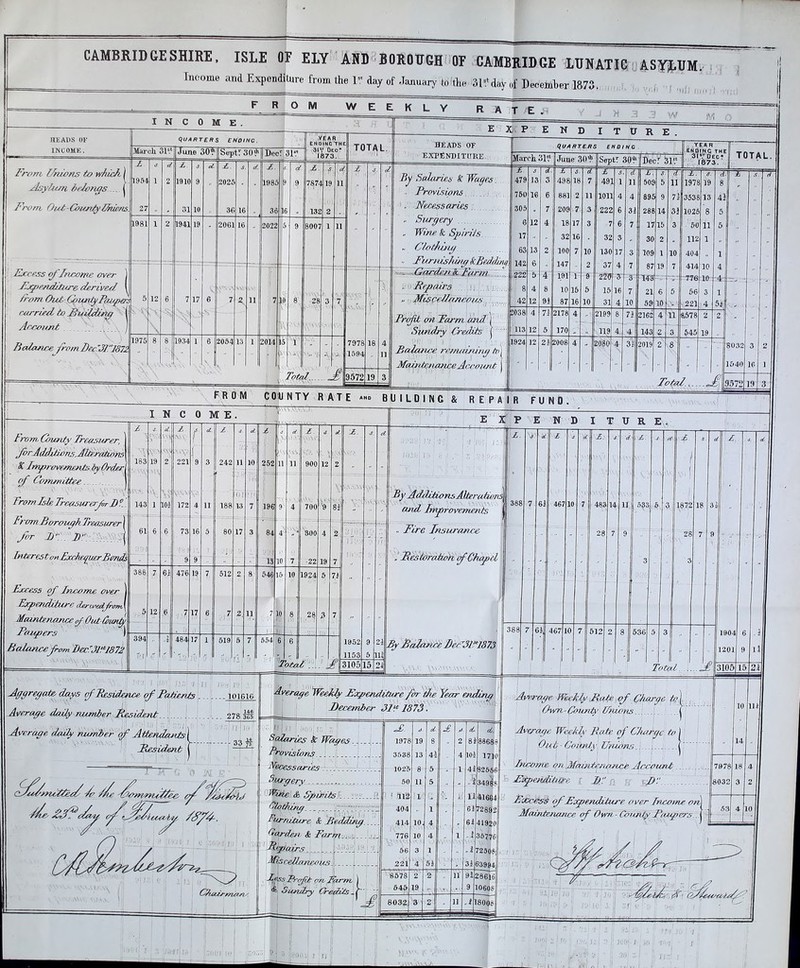 CAMBRIDGESHIRE, ISLE OF ELY AND BOROUGH OF CAMBRIDGE LUNATIC ASYLUM.
Income and Expenditure from the 1st day of January to the 31st day of December 1873.
FROM WEEKLY RATE.
INCOME.
HEADS OF INCOME.
QUARTERS ENDING.
March 31st June 30th Septr 30th Decr 31st
YEAR ENDING THE 31st Decr 1873.
TOTAL
£ s d £ s d £ s d £ s d £ s d £ s d
From Unions to which Asylum belongs 1954 1 2 1910 9 . 2025 . . 1985 9 9 7874 19 11
From Out-County Unions 27 . . 31 10 36 16 . 36 16 . 132 2 .
1981 1 2 1941 19 . 2061 16 . 2022 5 9 8007 1 11
Excess of Income over Expenditure derived from Out County Paupers carried to Building Account 5 12 6 7 17 6 7 2 11 7 10 8 28 3 7
1975 8 8 1934 1 6 2054 13 1 2014 15 1 7978 18 4
Balance from Decr 31st 1872 1594 . 11
Total £ 9572 19 3
EXPENDITURE.
HEADS OF EXPENDITURE
QUARTERS ENDING
March 31st June 30th Septr 30th Decr 31st
YEAR ENDING THE 31st Decr 1873.
TOTAL.
By Salaries & Wages 479 13 3 498 18 7 491 1 11 509 5 11 1978 19 8
" Provisions 750 16 6 881 2 11 1011 4 4 895 9 7½ 3538 13 4½
" Necessaries 305 . 7 209 7 3 222 6 3½ 288 14 3½ 1025 8 5
" Surgery 6 12 4 18 17 3 7 6 7 17 15 3 50 11 5
" Wine & Spirits 17 . . 32 16 . 32 3 . 30 2 . 112 1 .
" Clothing 63 13 2 100 7 10 130 17 3 109 1 10 404 . 1
" Furnishing & Bedding 142 6 . 147 . 2 37 4 7 87 19 7 414 10 4
" Garden & Farm 222 5 4 191 1 9 220 3 3 143 . . 776 10 4
" Repairs 8 4 8 10 15 5 15 16 7 21 6 5 56 3 1
" Miscellaneous 42 12 9½ 87 16 10 31 4 10 59 10 . 221 4 5½
2038 4 7½ 2178 4 . 2199 8 7½ 2162 4 11 8578 2 2
Profit on Farm and Sundry Credits 113 12 5 170 . . 119 4 4 143 2 3 545 19 .
1924 12 2½ 2008 4 . 2080 4 3½ 2019 2 8 8032 3 2
Balance remaining to Maintenance Account 1540 16 1
Total £ 9572 19 3
FROM COUNTY RATE AND BUILDING & REPAIR FUND.
INCOME.
From County Treasurer, for Additions, Alterations & Improvements by Order of Committee 183 19 2 221 9 3 242 11 10 252 11 11 900 12 2
From Isle Treasurer for Do 143 1 10½ 172 4 11 188 13 7 196 9 4 700 9 8½
From Borough Treasurer for Do Do 61 6 6 73 16 5 80 17 3 84 4 . 300 4 2
Interest on Exchequer Bonds 9 9 . 13 10 7 22 19 7
388 7 6½ 476 19 7 512 2 8 546 15 10 1924 5 7½
Excess of Income over Expenditure derived from Maintenance of Out County Paupers 5 12 6 7 17 6 7 2 11 7 10 8 28 3 7
394 . ½ 484 17 1 519 5 7 554 6 6 1952 9 2½
Balance from Decr 31st 1872 1153 5 11½
Total £ 3105 15 2¼
EXPENDITURE.
By Additions Alterations and Improvements 388 7 6½ 467 10 7 483 14 11 533 5 3 1872 18 3½
" Fire Insurance 28 7 9 28 7 9
" Restoration of Chapel 3 3
388 7 6½ 467 10 7 512 2 8 536 5 3 1904 6 ½
By Balance Decr 31st 1873 1201 9 1½
Total £ 3105 15 2¼
Aggregate days of Residence of Patients 101616
Average daily number Resident 278 146/365
Average daily number of Attendants Resident 33
Submitted to the Committee of Visitors the 23rd day of February 1874.
Chairman
Average Weekly Expenditure for the Year ending December 31st 1873.
£ s d £ s d d.
Salaries & Wages 1978 19 8 . 2 8¾ 88688
Provisions 3538 13 4½ . 4 10½
Necessaries 1025 8 5 . 1 4¾ 82556
Surgery 50 11 5
Wine & Spirits 112 1 . . . 1¾ 41664
Clothing 404 . 1 . . 6½ 72892
Furniture & Bedding 414 10 4 . . 6¾ 41920
Garden & Farm 776 10 4 . 1
Repairs 56 3 1
Miscellaneous 221 4 5½ . . 3½ 63994
8578 2 2 . 11 9½ 28616
Less Profit on Farm & Sundry Credits 545 19 . . . 9 10608
£ 8032 3 2 . 11 . ½ 18008
Average Weekly Rate of Charge to Own-County Unions 10 11½
Average Weekly Rate of Charge to Out-County Unions 14 .
Income on Maintenance Account 7978 18 4
Expenditure Do Do 8032 3 2
Excess of Expenditure over Income on Maintenance of Own-County Paupers 53 4 10
Clerk & Steward